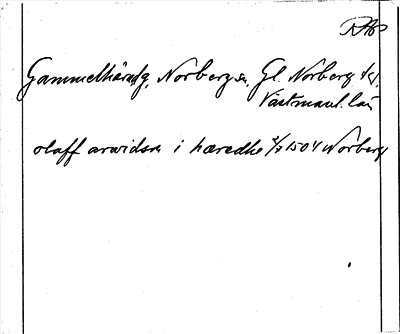 RAp
Gammelhärad, Norberg sn, Gl. Norberg bg,
Västmanl. län
olaff arwidsn i hæredhe 2/7 1504 Norberg